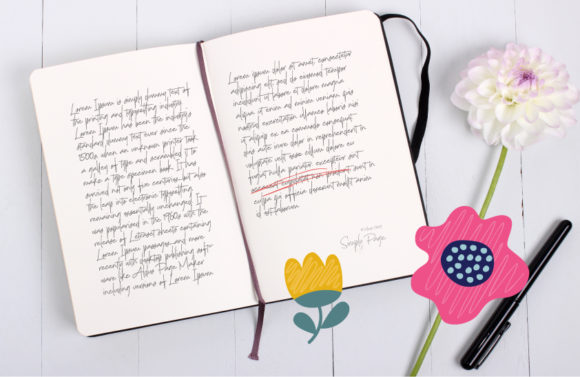 Lorem Ipsum is simply dummy text of
the printing and typesetting industry.
Lorem Ipsum has been the industry
standard dummy text ever since the
1500s when an unknown printer took
a galley of type and scrambled it to
make a type specimen book. It has
survived not only five centuries but also
the leap into electronic typesetting
remaining essentially unchanged. It
was popularised in the 1960s with the
release of Letraset sheets containing
Lorem Ipsum passages and more
recently with desktop publishing soft
ware like Aldus Page Maker
including versions of Lorem Ipsum
Lorem ipsum dolor sit amet, consectetur
adipiscing elit sed do eiusmod tempor
incididunt ut labore et dolore magna
aliqua ut enim ad minim veniam quis
nostrud exercitation ullamco laboris nisi
ut aliquip ex ea commodo consequat
duis aute irure dolor in reprehenderit in
voluptate velit esse cillum dolore eu
fugiat nulla pariatur excepteur sint
occaecat cupidatat non proident sunt in
culpa qui officia deserunt mollit anim
id est laborum
Simply